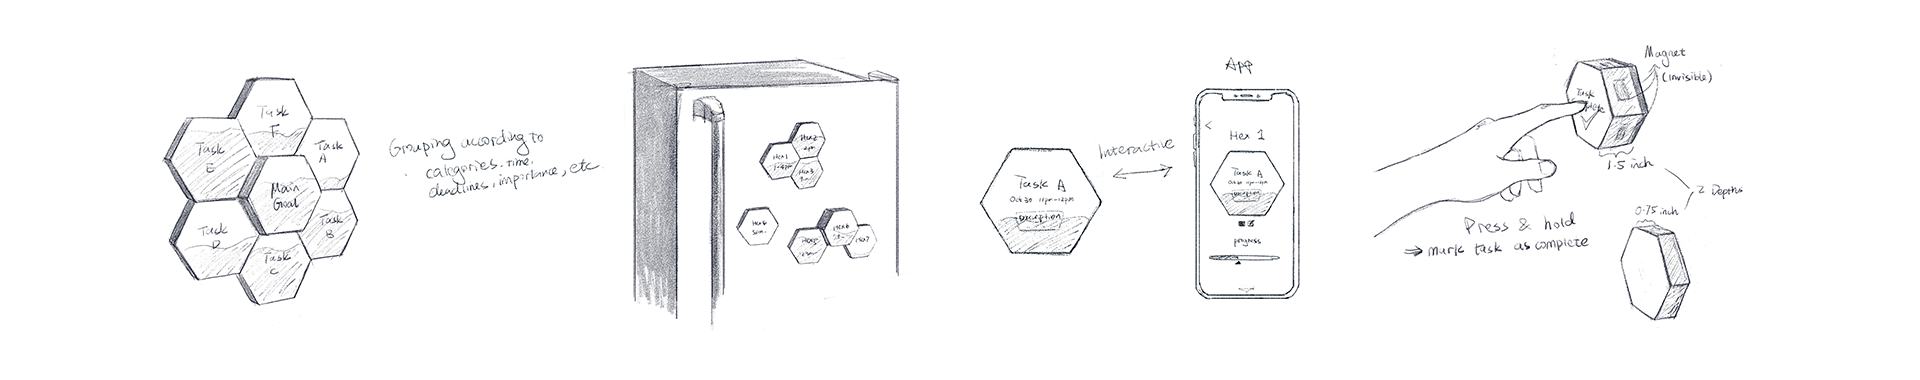 Task
F
Task
E
Task
A
Main
Goal
Task
D
Task
B
Task
C
Grouping according to
categories, time,
deadlines, importance, etc
Hex 2
Hex 1
Hex 3
Hex 4
Hex 5
Hex 6
Hex 7
Task A
Oct 30 11pm-12pm
Interactive
App
<
Hex 1
Task A
Oct 30 11pm-12pm
progress
Magnet
(invisible)
Task
1.5 inch
2 Depths
0.75 inch
Press & hold
⇒ mark task as complete